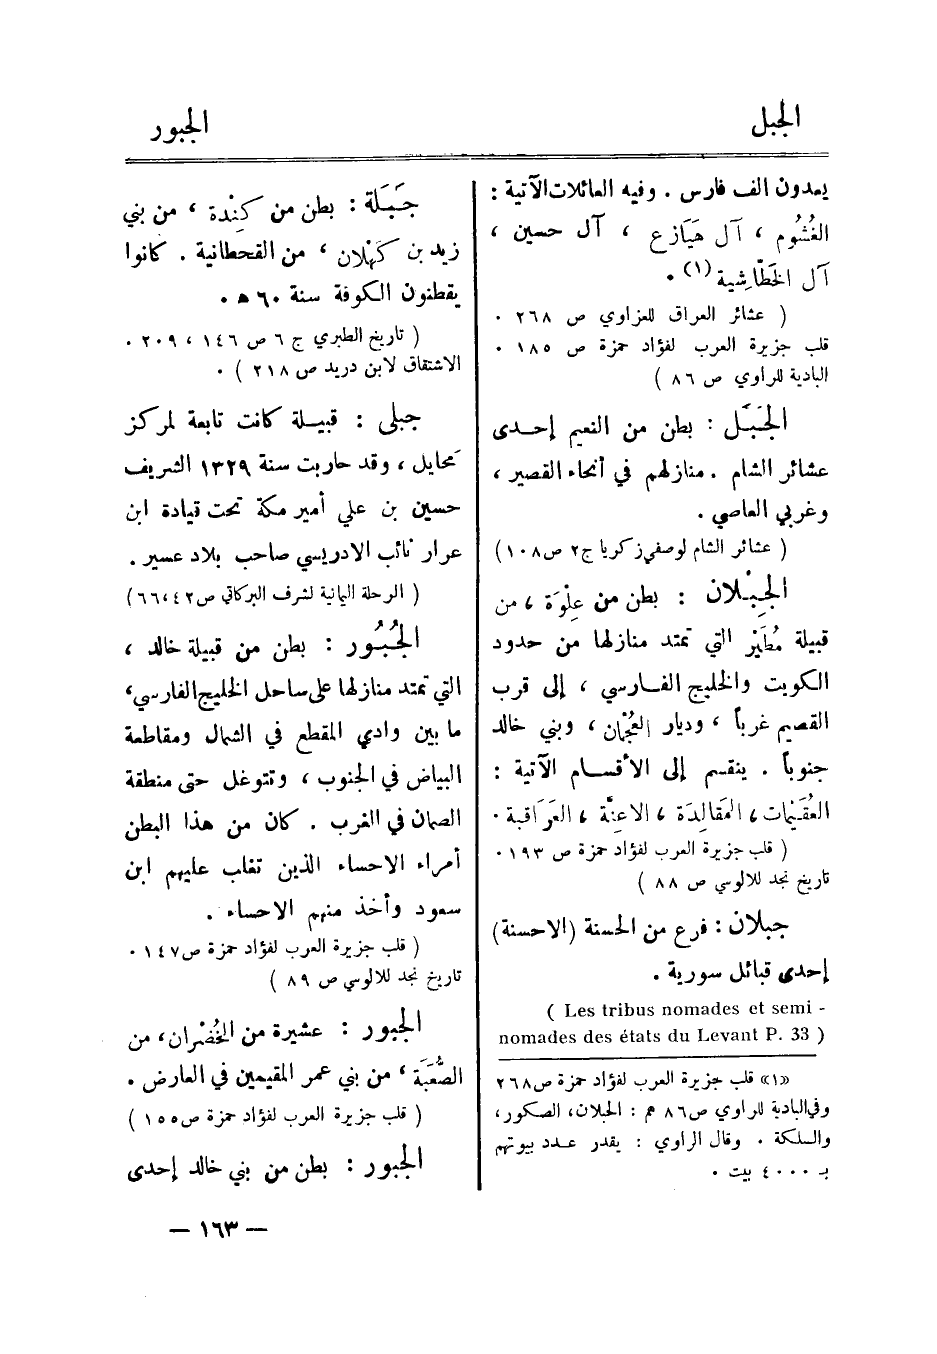 الجبل
الجبور
يعدون الف فارس . وفيه العائلات الآتية :
الغشُوم ، آل هَيَازع ، آل حسين ،
آل الخَطّاشية (١) .
( عشائر العراق للعزاوي ص ٢٦٨ .
قلب جزيرة العرب لفؤاد حمزة ص ١٨٥ .
البادية للراوي ص ٨٦ )
الجَبَل : بطن من النعيم إحدى
عشائر الشام . منازلهم في أنحاء القصير ،
وغربي العاصي .
( عشائر الشام لوصفي زكريا ج٢ ص١٠٨ )
الجِبْلان : بطن من عِلْوَة ، من
قبيلة مُطَيْر التي تمتد منازلها من حدود
الكويت والخليج الفارسي ، إلى قرب
القصيم غرباً ، وديار العُجْمان ، وبني خالد
جنوباً . ينقسم إلى الأقسام الآتية :
العُقَيْمات ، المَقَالِدَة ، الاعِنَّة ، العَرَاقبة .
( قلب جزيرة العرب لفؤاد حمزة ص ١٩٣ .
تاريخ نجد للالوسي ص ٨٨ )
جبلان : فرع من الحسنة (الاحسنة)
إحدى قبائل سورية .
( Les tribus nomades et semi -
nomades des états du Levant P. 33 )
«١» قلب جزيرة العرب لفؤاد حمزة ص٢٦٨
وفي البادية للراوي ص٨٦ هم : الجبلان، الصكور،
والسلكة . وقال الراوي : يقدر عدد بيوتهم
بـ ٤٠٠٠ بيت .
جَبَلَة : بطن من كِنْدة ، من بني
زيد بن كَهْلان ، من القحطانية . كانوا
يقطنون الكوفة سنة ٦٠ ه .
( تاريخ الطبري ج ٦ ص ١٤٦ ، ٢٠٩ .
الاشتقاق لابن دريد ص ٢١٨ ) .
جبلى : قبيلة كانت تابعة لمركز
محايل ، وقد حاربت سنة ١٣٢٩ الشريف
حسين بن علي أمير مكة تحت قيادة ابن
عرار نائب الادريسي صاحب بلاد عسير .
( الرحلة اليمانية لشرف البركاتي ص٤٢،٦٦ )
الجُبُور : بطن من قبيلة خالد ،
التي تمتد منازلها على ساحل الخليج الفارسي ،
ما بين وادي المقطع في الشمال ومقاطعة
البياض في الجنوب ، وتتوغل حتى منطقة
الصمان في الغرب . كان من هذا البطن
أمراء الاحساء الذين تغلب عليهم ابن
سعود وأخذ منهم الاحساء .
( قلب جزيرة العرب لفؤاد حمزة ص١٤٧ .
تاريخ نجد للالوسي ص ٨٩ )
الجبور : عشيرة من الخُضْران، من
الصُّعَبَة ، من بني عمر المقيمين في العارض .
( قلب جزيرة العرب لفؤاد حمزة ص١٥٥ )
الجبور : بطن من بني خالد إحدى
— ١٦٣ —